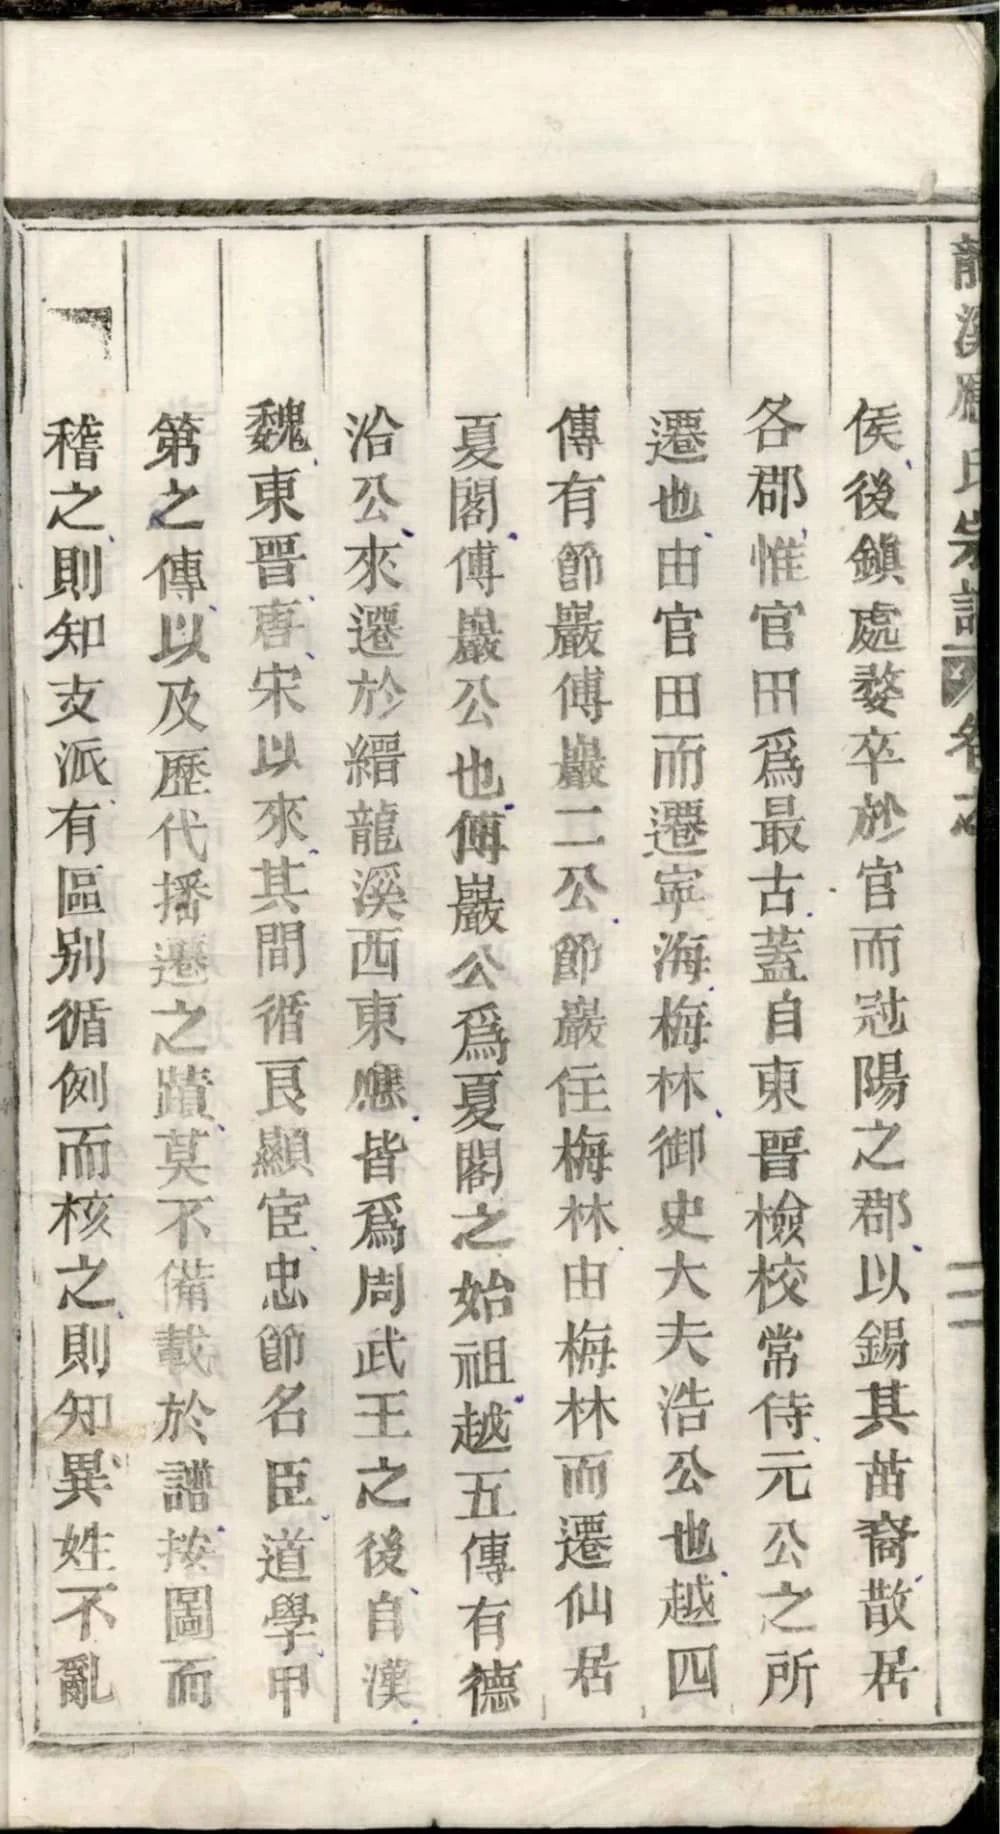 龍溪應氏宗譜 卷之 二
侯後鎮處婺卒於官而冠陽之郡以錫其苗裔散居
各郡惟官田爲最古蓋自東晉檢校常侍元公之所
遷也由官田而遷寧海梅林御史大夫浩公也越四
傳有節巖傅巖二公節巖住梅林由梅林而遷仙居
夏閣傅巖公也傅巖公爲夏閣之始祖越五傳有德
沿公來遷於縉龍溪西東應皆爲周武王之後自漢
魏東晉唐宋以來其間循良顯宦忠節名臣道學甲
第之傳以及歷代播遷之蹟莫不備載於譜按圖而
稽之則知支派有區別循例而核之則知異姓不亂